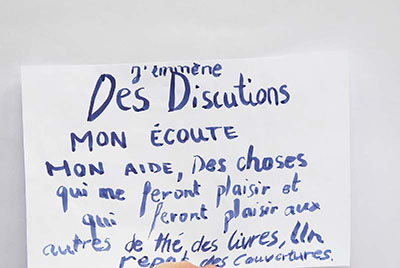 J'emmène
Des Discutions
MON ÉCOUTE
MON AIDE, Des choses
qui me feront plaisir et
qui feront plaisir aux
autres de thé, des livres, Un
repat des couvertures.